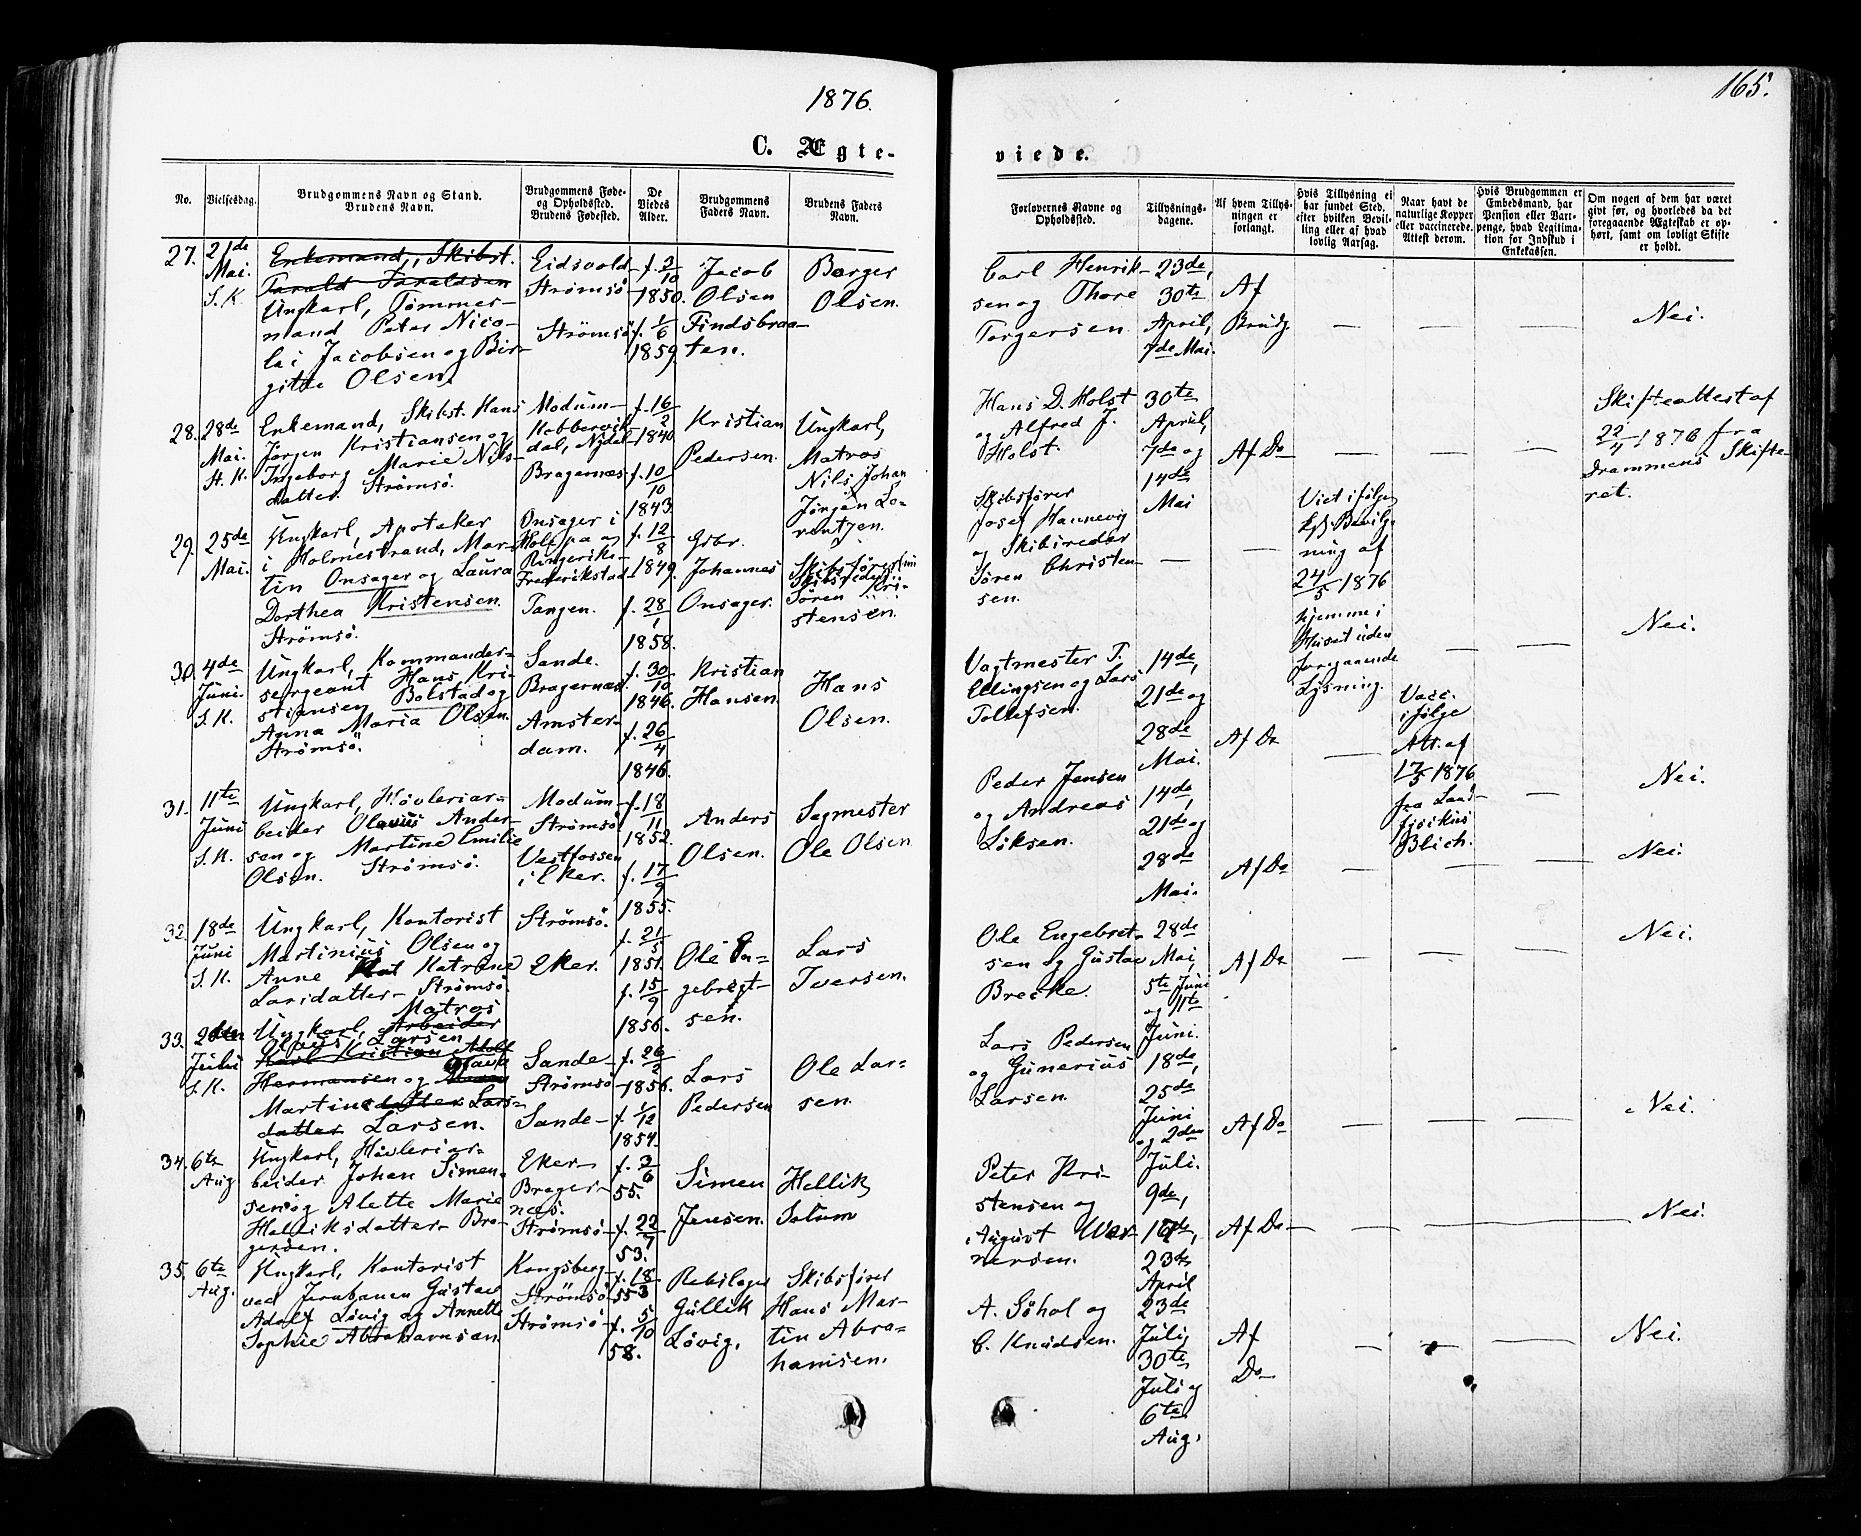 1876.
165.
C. Ægte-
viede.
No.
Vielsesdag.
Brudgommens Navn og Stand.
Brudens Navn.
Brudgommens Føde-
og Opholdssted.
Brudens Fødested.
De
Viedes
Alder.
Brudgommens
Faders Navn.
Brudens Faders
Navn.
Forlovernes Navne og
Opholdssted.
Tillysnings-
dagene.
Af hvem Tillys-
ningen er
forlangt.
Hvis Tillysning ei
har fundet Sted,
efter hvilken Bevil-
ling eller af hvad
lovlig Aarsag.
Naar havt de
naturlige Kopper
eller vaccinerede.
Attest derom.
Hvis Brudgommen er
Embedsmand, har
Pension eller Vart-
penge, hvad Legitima-
tion for Indskud i
Enkekassen.
Om nogen af dem har været
givt før, og hvorledes da det
foregaaende Ægteskab er op-
hørt, samt om lovligt Skifte
er holdt.
27.
21de
Mai.
S. K.
Enkemand, Skibst.
Tarald Taraldsen
Ungkarl, Tømmer-
mand Peter Nico-
lai Jacobsen og Bir-
gitte Olsen.
Eidsvold
Strømsø
Strømsø
f. 3/10
1850.
f. 1/6
1859.
Jacob
Olsen
Findsbraa-
ten.
Borger
Olsen.
Carl Henrik-
sen og Thore
Torgersen.
23de,
30te
April,
7de Mai.
Af
Brudg.
—
—
—
Nei.
28.
28de
Mai.
St. K.
Enkemand, Skibst. Hans
Jørgen Kristiansen og
Ingeborg Marie Nils-
datter. Strømsø.
Modum-
Kobbervik-
dal, Nydal-
Bragernæs
f. 16/2
1840
f. 10/10
1843
Kristian
Pedersen.
Ungkarl,
Matros
Nils Johan
Jørgen Lo-
rentzen.
Hans D. Holst
og Alfred J.
Holst.
30te
April,
7de og
14de
Mai
Af Do
—
—
—
Skifteattest af
22/4 1876 fra
Drammens Skifte-
ret.
29.
25de
Mai.
Ungkarl, Apoteker
i Holmestrand, Mar-
tin Onsager og Laura
Dorthea Kristensen.
Strømsø.
Onsager i
Ringerike-
Frederikstad
Tangen.
f. 12/8
1849.
f. 28/1
1858.
Gbr.
Johannes
Onsager.
Skibsfører
Skibsreder
Søren Kri-
stensen.
Skibsfører
Josef Hannevig
og Skibsreder
Søren Christen-
sen.
—
—
Viet ifølge
kgl. Bevilg-
ning af
24/5 1876
hjemme i
Huset uden
foregaaende
Lysning.
—
—
Nei.
30.
4de
Juni.
S. K.
Ungkarl, Kommander-
sergeant Hans Kri-
stiansen Bolstad og
Anna Maria Olsen.
Strømsø.
Sande.
Bragernæs
Amster-
dam.
f. 30/10
1846.
f. 26/4
1846.
Kristian
Hansen.
Hans
Olsen.
Vagtmester T.
Ellingsen og Lars
Tollefsen.
14de,
21de og
28de
Mai.
Af Do
—
Vacc.
ifølge
Att. af
17/5 1876
fra Land-
fysikus
Blich.
—
Nei.
31.
11te
Juni
S. K.
Ungkarl, Høvleriar-
beider Olavus Ander-
sen og Martine Emilie
Olsen. Strømsø.
Modum-
Strømsø
Vestfossen
i Eker.
f. 18/11
1852.
f. 17/9
1855.
Anders
Olsen.
Sagmester
Ole Olsen
Peder Jensen
og Andreas
Løksen.
14de,
21de og
28de
Mai.
Af Do
—
—
—
Nei.
32.
18de
Juni
S. K.
Ungkarl, Kontorist
Martinius Olsen og
Anne Kat Katrine
Larsdatter- Strømsø.
Strømsø.
Eker.
f. 21/5
1851.
f. 15/9
1856.
Ole En-
gebregt-
sen.
Lars
Iversen.
Ole Engebret-
sen og Gustav
Brecke.
28de
Mai,
5te Juni
og 11te
Juni.
Af Do
—
—
—
Nei.
33.
2den
Juli
S. K.
Matros
Ungkarl, Arbeider
Larsen
Karl Kristian Adolf
Hermansen og
Martine datter Lars-
datter Larsen.
Sande-
Strømsø-
Sande-
f. 26/2
1856.
f. 1/12
1854.
Lars
Pedersen
Ole Lar-
sen.
Lars Pedersen
og Gunerius
Larsen.
18de,
25de
Juni
og 2den
Juli.
Af Do
—
—
—
Nei.
34.
6te
Aug
Ungkarl, Høvleriar-
beider Johan Simen-
sen og Alette Marie
Helliksdatter- Bra-
gersøen.
Eker-
Brager-
næs.
Strømsø-
f. 3/6
55.
f. 22/7
53.
Simen
Jensen.
Hellik
Solum
Peter Kri-
stensen og
August Wer-
nersen.
9de,
16de,
23de
April
Af Do
—
—
—
Nei.
35.
6te
Aug.
Ungkarl, Kontorist
ved Jernbanen Gustav
Adolf Løvig og Annette
Sophie Abrahamsen
Kongsberg-
Strømsø
Strømsø-
f. 18/3
55
f. 5/10
58.
Gullik
Løvig.
Skibsfører
Hans Mar-
tin Abra-
hamsen.
A. Søhol og
C. Knudsen.
23de
Juli,
30te
Juli og
6te
Aug.
Af
Do
—
—
—
Nei.